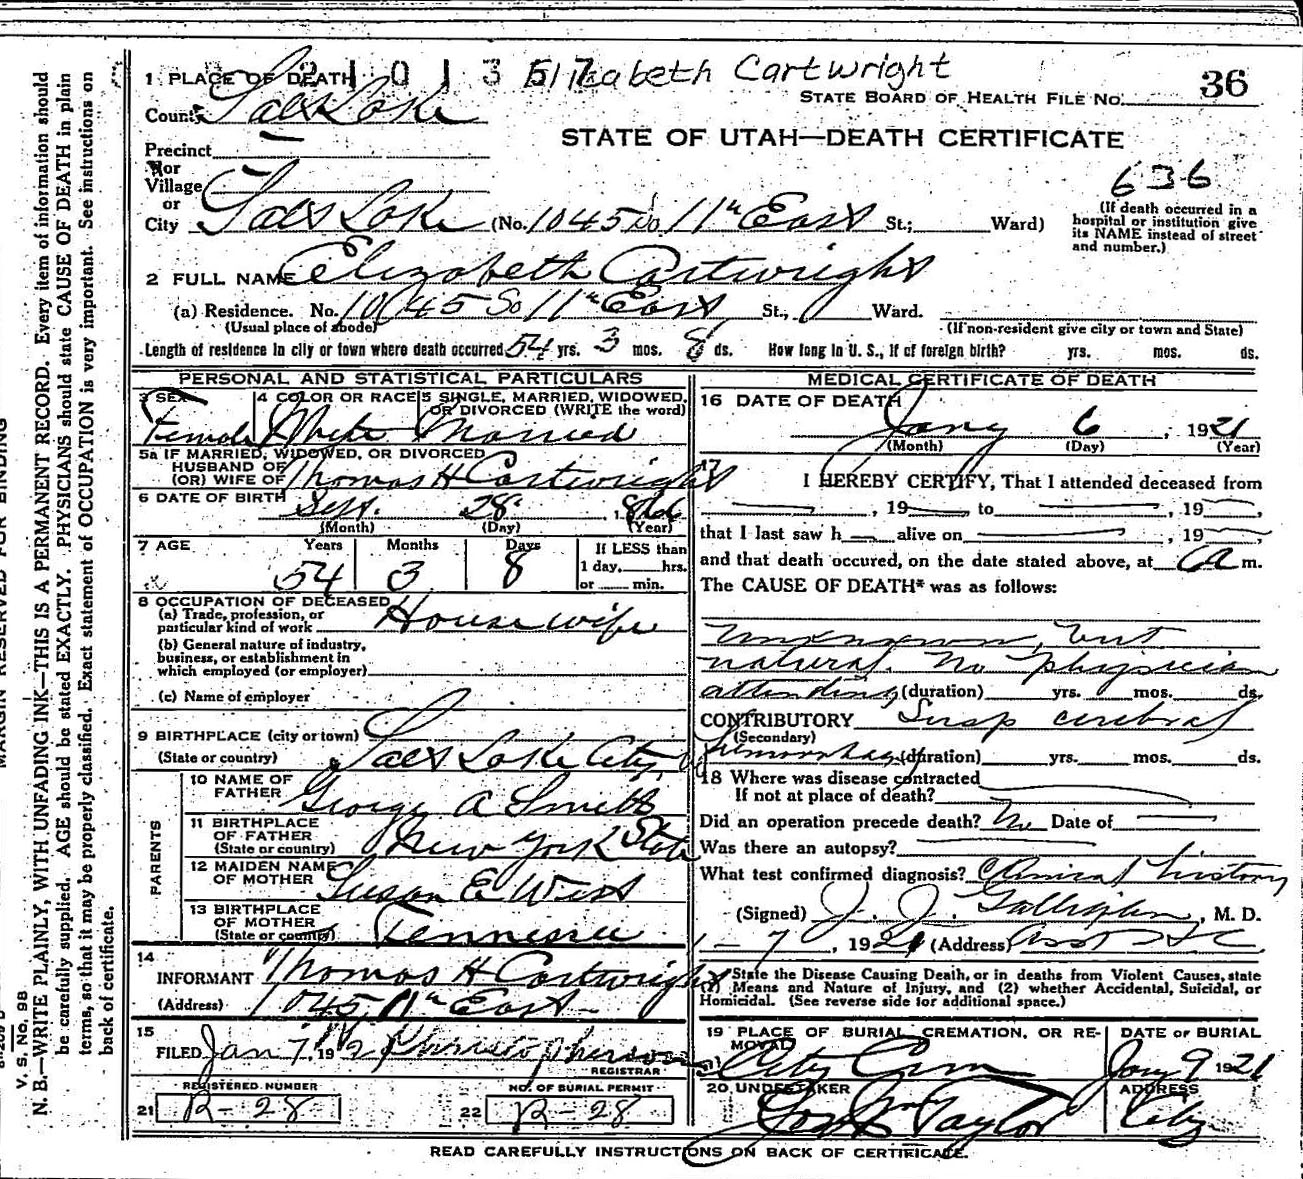 Elizabeth Cartwright
1 PLACE OF DEATH 21013517
36
STATE BOARD OF HEALTH FILE NO.
County Salt Lake
STATE OF UTAH—DEATH CERTIFICATE
Precinct
or
Village
636
or
City Salt Lake (No. 1045 So 11th East St.; Ward)
(If death occurred in a
hospital or institution give
its NAME instead of street
and number.)
2 FULL NAME Elizabeth Cartwright
(a) Residence. No. 1045 So 11th East St., Ward.
(Usual place of abode) (If non-resident give city or town and State)
Length of residence in city or town where death occurred 54 yrs. 3 mos. 8 ds. How long in U. S., if of foreign birth? yrs. mos. ds.
PERSONAL AND STATISTICAL PARTICULARS
3 SEX 4 COLOR OR RACE 5 SINGLE, MARRIED, WIDOWED,
OR DIVORCED (WRITE the word)
Female White Married
5a IF MARRIED, WIDOWED, OR DIVORCED
HUSBAND OF
(OR) WIFE OF Thomas H Cartwright
6 DATE OF BIRTH Sept. 28
(Month) (Day) (Year)
7 AGE Years Months Days If LESS than
1 day, hrs.
54 3 8 or min.
8 OCCUPATION OF DECEASED
(a) Trade, profession, or
particular kind of work House wife
(b) General nature of industry,
business, or establishment in
which employed (or employer)
(c) Name of employer
9 BIRTHPLACE (city or town)
(State or country) Salt Lake City
PARENTS
10 NAME OF
FATHER George A Smith
11 BIRTHPLACE
OF FATHER
(State or country) New York State
12 MAIDEN NAME
OF MOTHER Susan E West
13 BIRTHPLACE
OF MOTHER
(State or country) Tennessee
14
INFORMANT Thomas H Cartwright
(Address) 1045 11th East
15
FILED Jan 7, 1921 Christopherson
REGISTRAR
REGISTERED NUMBER NO. OF BURIAL PERMIT
21 R-28 22 R-28
MEDICAL CERTIFICATE OF DEATH
16 DATE OF DEATH
Jany 6, 1921
(Month) (Day) (Year)
17
I HEREBY CERTIFY, That I attended deceased from
, 19 to , 19 ,
that I last saw h alive on , 19 ,
and that death occured, on the date stated above, at a m.
The CAUSE OF DEATH* was as follows:
Unknown, but
natural. No physician
attending (duration) yrs. mos. ds.
CONTRIBUTORY Susp cerebral
(Secondary)
hemorrhage (duration) yrs. mos. ds.
18 Where was disease contracted
If not at place of death?
Did an operation precede death? No Date of
Was there an autopsy?
What test confirmed diagnosis? Clinical history
(Signed) J. J. Galligan, M. D.
1-7, 1921 (Address)
*State the Disease Causing Death, or in deaths from Violent Causes, state
(1) Means and Nature of Injury, and (2) whether Accidental, Suicidal, or
Homicidal. (See reverse side for additional space.)
19 PLACE OF BURIAL, CREMATION, OR RE- DATE OF BURIAL
MOVAL
City Cem Jany 9 1921
20 UNDERTAKER ADDRESS
Jos Wm Taylor City
READ CAREFULLY INSTRUCTIONS ON BACK OF CERTIFICATE.
MARGIN RESERVED FOR BINDING
V. S. No. 98
N. B.—WRITE PLAINLY, WITH UNFADING INK—THIS IS A PERMANENT RECORD. Every item of information should
be carefully supplied. AGE should be stated EXACTLY. PHYSICIANS should state CAUSE OF DEATH in plain
terms, so that it may be properly classified. Exact statement of OCCUPATION is very important. See instructions on
back of certificate.